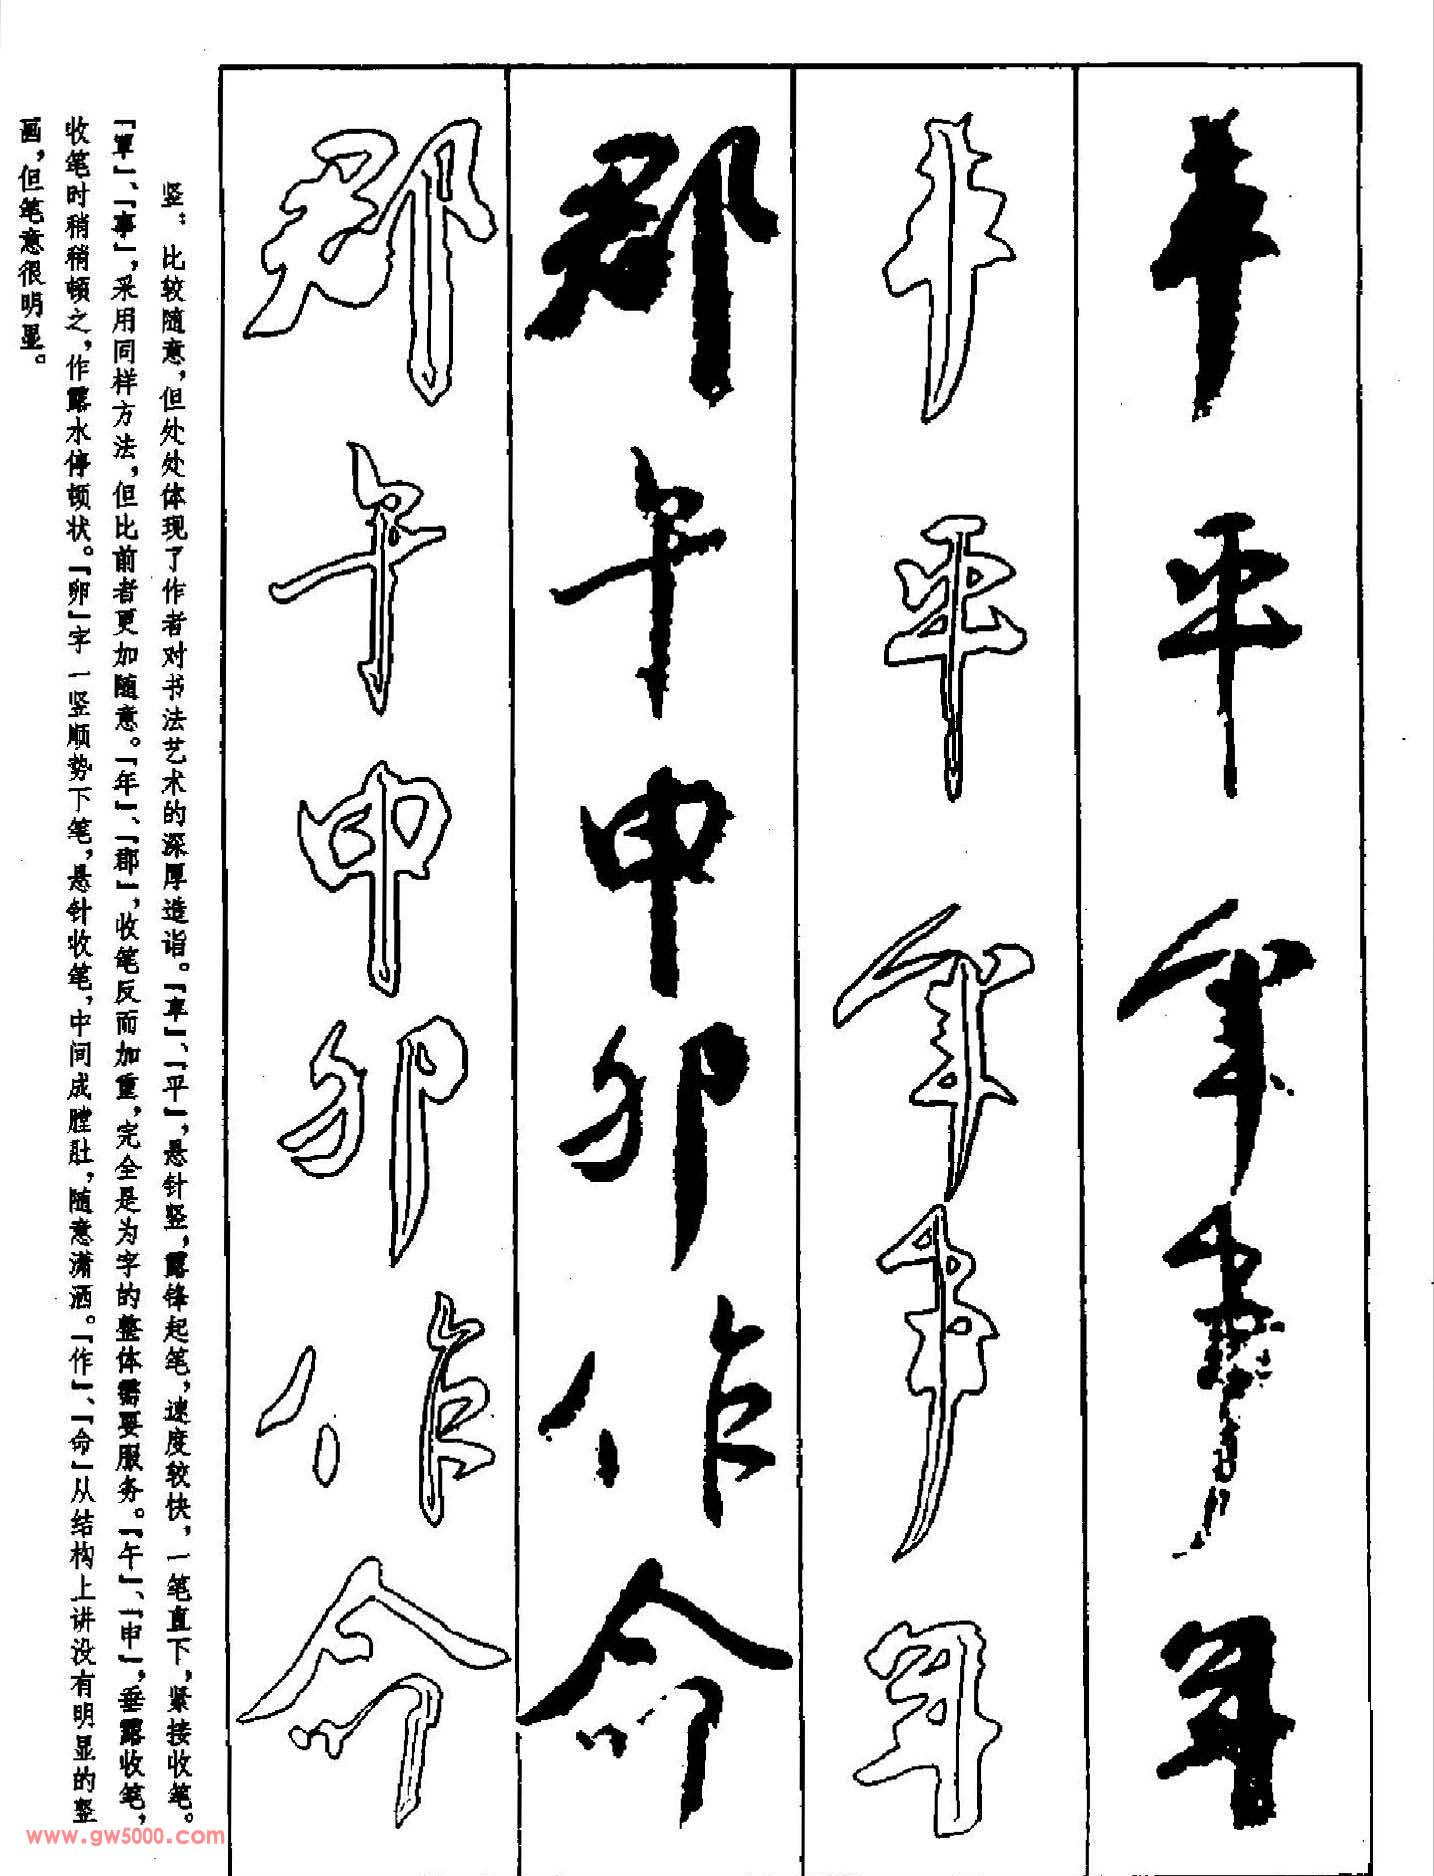 平 事 年
平 事 年
郡 午 申 卯 作 命
郡 午 申 卯 作 命
竖：比较随意，但处处体现了作者对书法艺术的深厚造诣。「」、「平」，悬针竖，露锋起笔，速度较快，一笔直下，紧接收笔。
「」、「事」，采用同样方法，但比前者更加随意。「年」、「郡」，收笔反而加重，完全是为字的整体需要服务。「午」、「申」，垂露收笔，
收笔时稍稍顿之，作露水停顿状。「卵」字一竖顺势下笔，悬针收笔，中间成膛肚，随意潇洒。「作」、「命」从结构上讲没有明显的竖
画，但笔意很明显。
www.gw5000.com